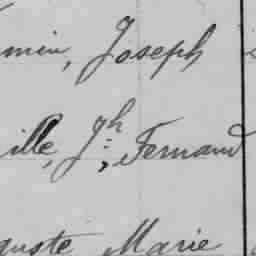 min, Joseph
ille, Jh: Fernand
guste Marie